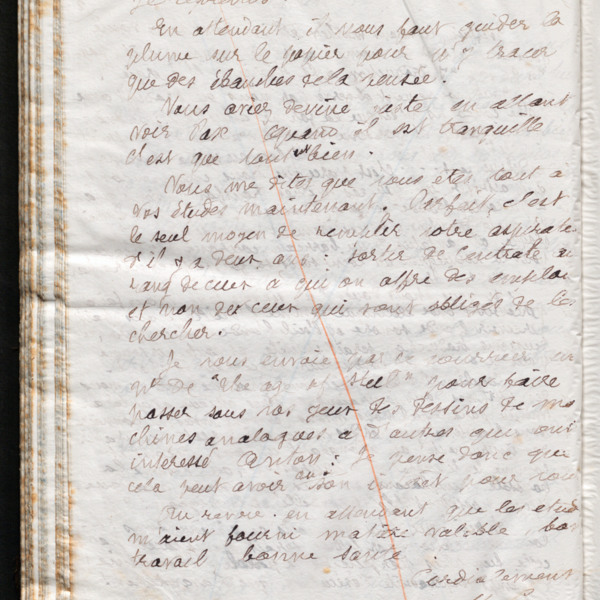 En attendant il vous faut guider la
plume sur le papier pour n'y tracer
que des ébauches de la pensée.
Vous aviez deviné juste en allant
voir Pax quand il est tranquille
c'est que tout est bien.
Vous me dites que vous êtes tout à
vos études maintenant. Parfait, c'est
le seul moyen de remplir votre
d'il y a deux ans : sortir de Centrale au
rang de ceux à qui on offre des emplois
et non de ceux qui sont obligés de les
chercher.
Je vous envoie par ce courrier un
n° de pour faire
passer sous vos yeux des dessins de ma
chines analogues à d'autres qui ont
intéressé Anton : Je pense donc que
cela peut avoir aussi son intérêt pour vous
Au revoir en attendant que les etud
m'aient fourni matière valable, bon
travail bonne santé.
Cordialement